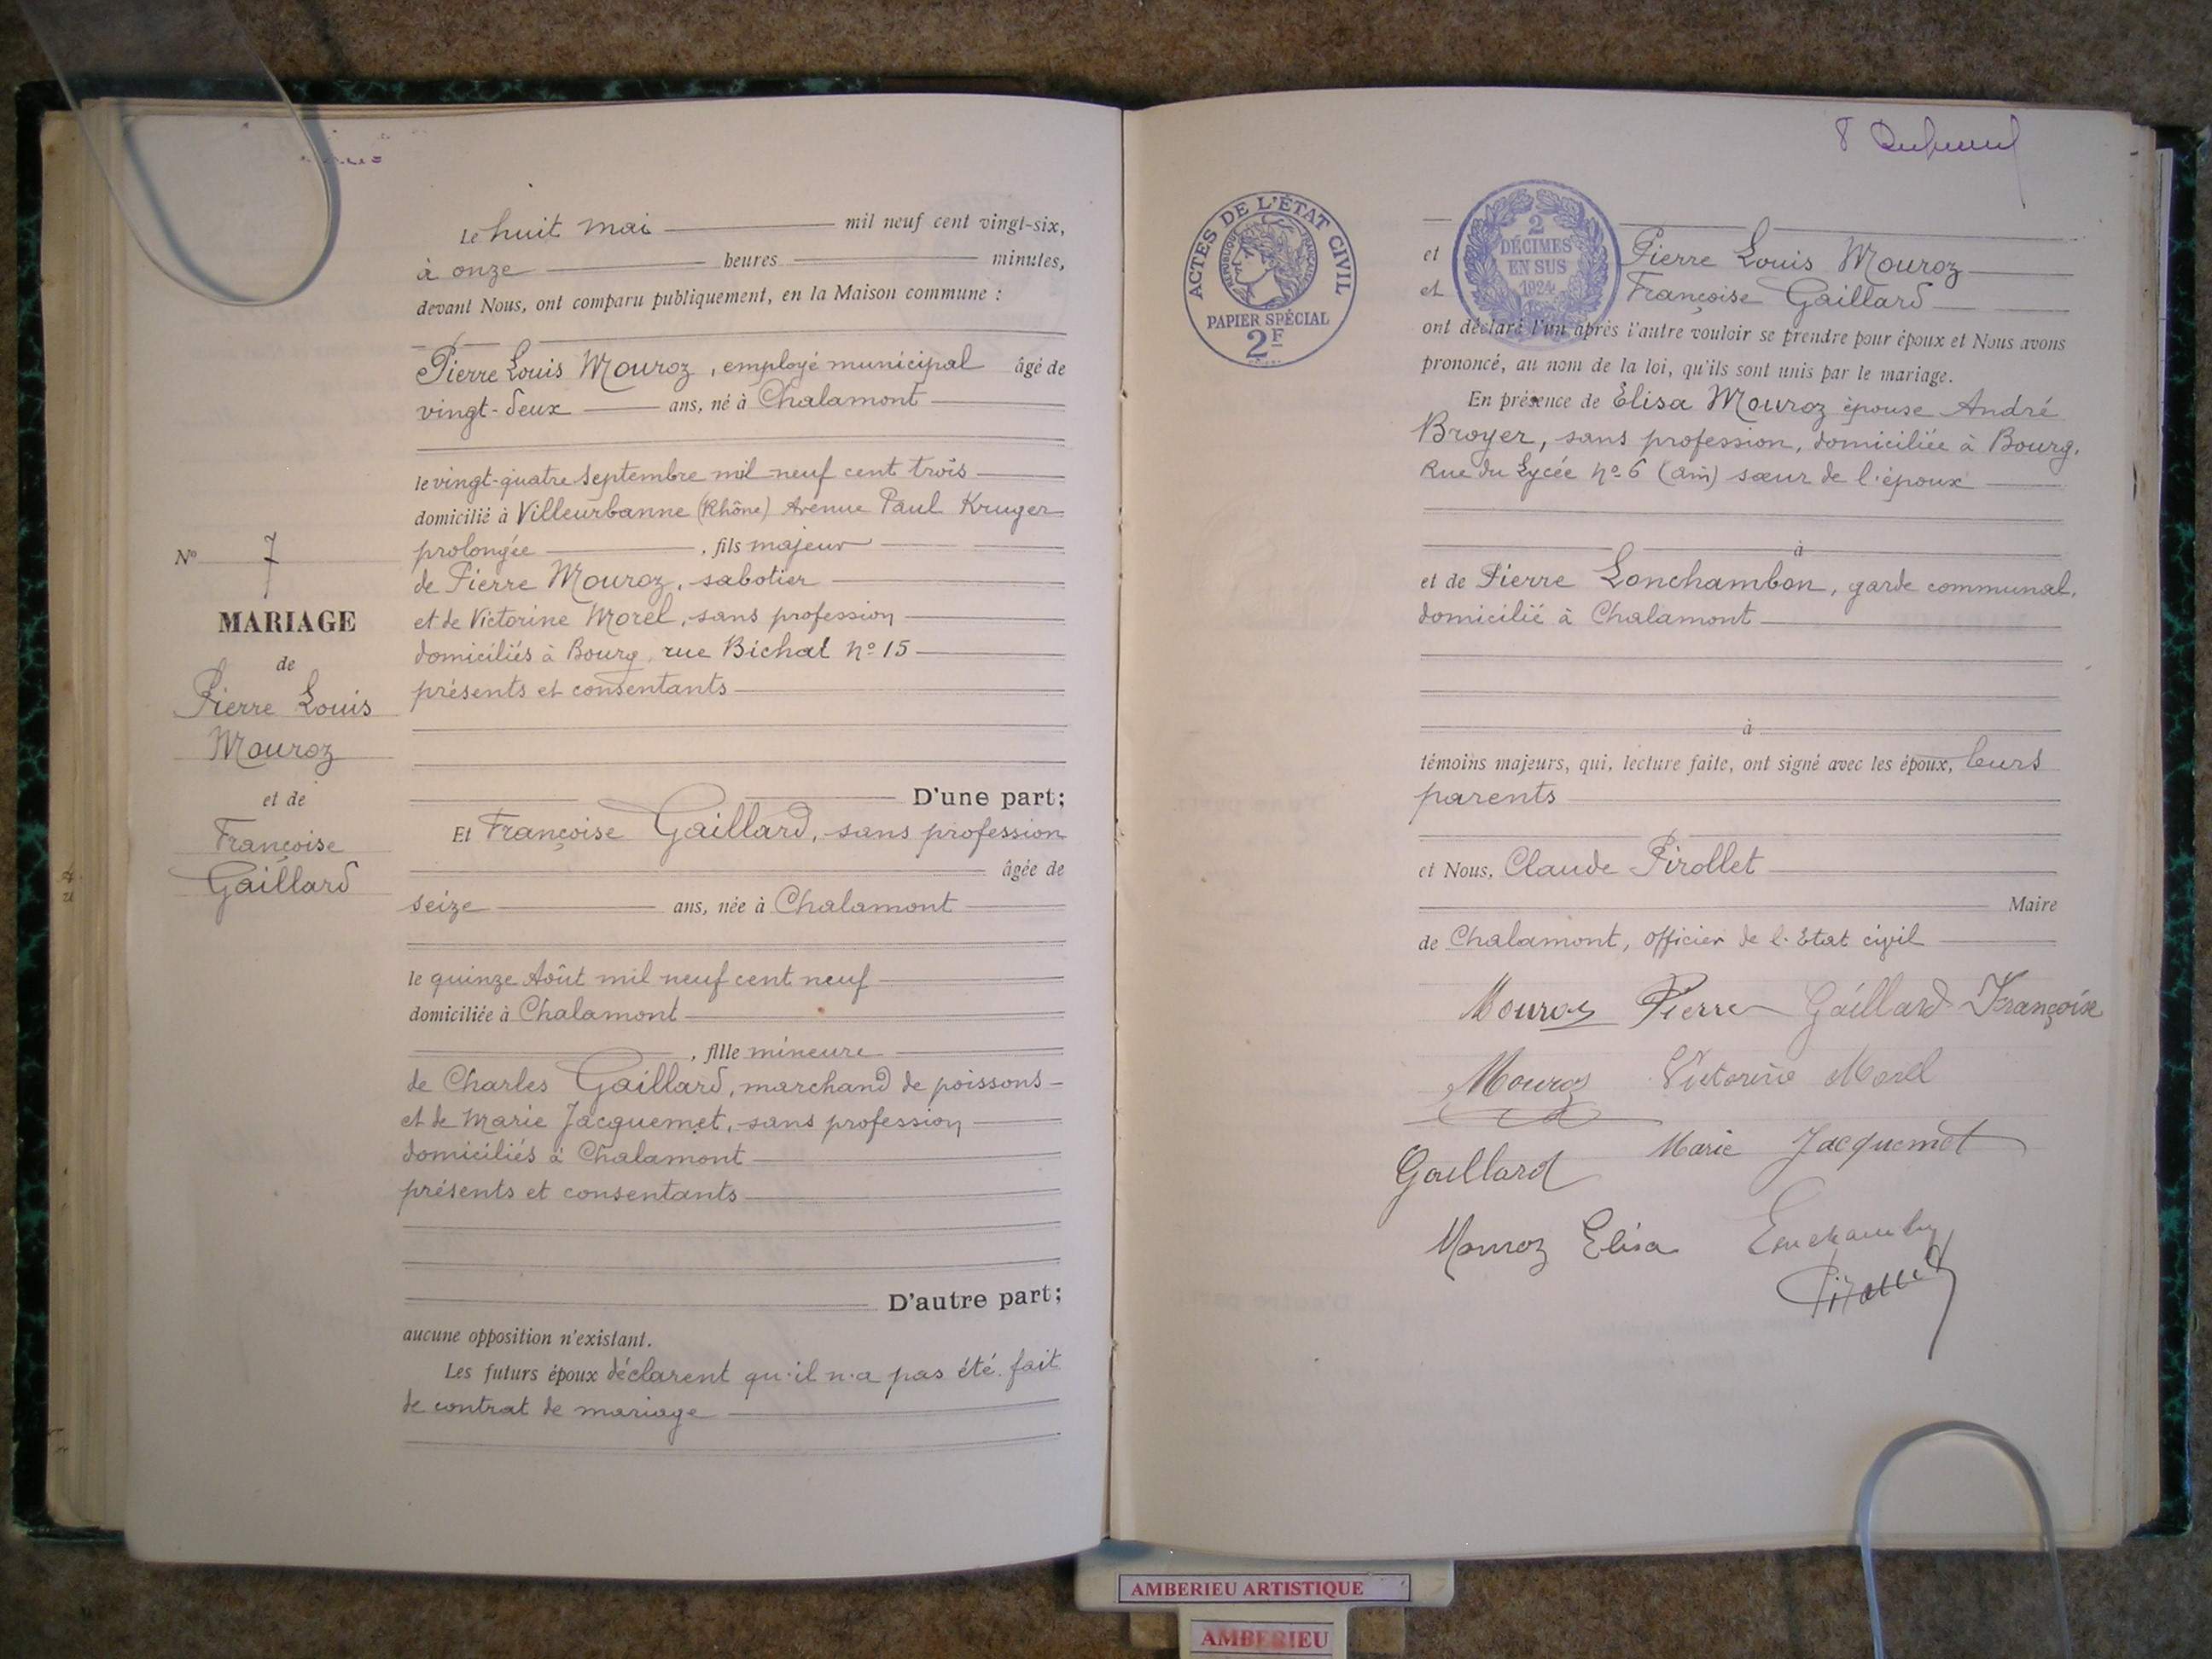 Le huit mai mil neuf cent vingt-six,
à onze heures minutes,
devant Nous, ont comparu publiquement, en la Maison commune :
Pierre Louis Mouroz, employé municipal âgé de
vingt-deux ans, né à Chalamont
le vingt-quatre Septembre mil neuf cent trois
domicilié à Villeurbanne (Rhône) Avenue Paul Kruger
prolongée , fils majeur
de Pierre Mouroz, sabotier
et de Victorine Morel, sans profession
domiciliés à Bourg, rue Bichat No 15
présents et consentants
D'une part;
Et Françoise Gaillard, sans profession
âgée de
seize ans, née à Chalamont
le quinze Août mil neuf cent neuf
domiciliée à Chalamont
, fille mineure
de Charles Gaillard, marchand de poissons
et de Marie Jacquemet, sans profession
domiciliés à Chalamont
présents et consentants
D'autre part;
aucune opposition n'existant.
Les futurs époux déclarent qu'il n'a pas été fait
de contrat de mariage
No 7
MARIAGE
de
Pierre Louis
Mouroz
et de
Françoise
Gaillard
8
ACTES DE L'ÉTAT CIVIL
RÉPUBLIQUE FRANÇAISE
PAPIER SPÉCIAL
2F
2
DÉCIMES
EN SUS
1924
et Pierre Louis Mouroz
et Françoise Gaillard
ont déclaré l'un après l'autre vouloir se prendre pour époux et Nous avons
prononcé, au nom de la loi, qu'ils sont unis par le mariage.
En présence de Elisa Mouroz épouse André
Broyer, sans profession, domiciliée à Bourg,
Rue du Lycée No 6 (Ain) sœur de l'époux
à
et de Pierre Lonchambon, garde communal,
domicilié à Chalamont
à
témoins majeurs, qui, lecture faite, ont signé avec les époux, leurs
parents
et Nous, Claude Pirollet
Maire
de Chalamont, officier de l'Etat civil
Mouroz Pierre Gaillard Françoise
Mouroz Victorine Morel
Gaillard Marie Jacquemet
Mouroz Elisa Lonchambon
Pirollet
AMBERIEU ARTISTIQUE
AMBERIEU